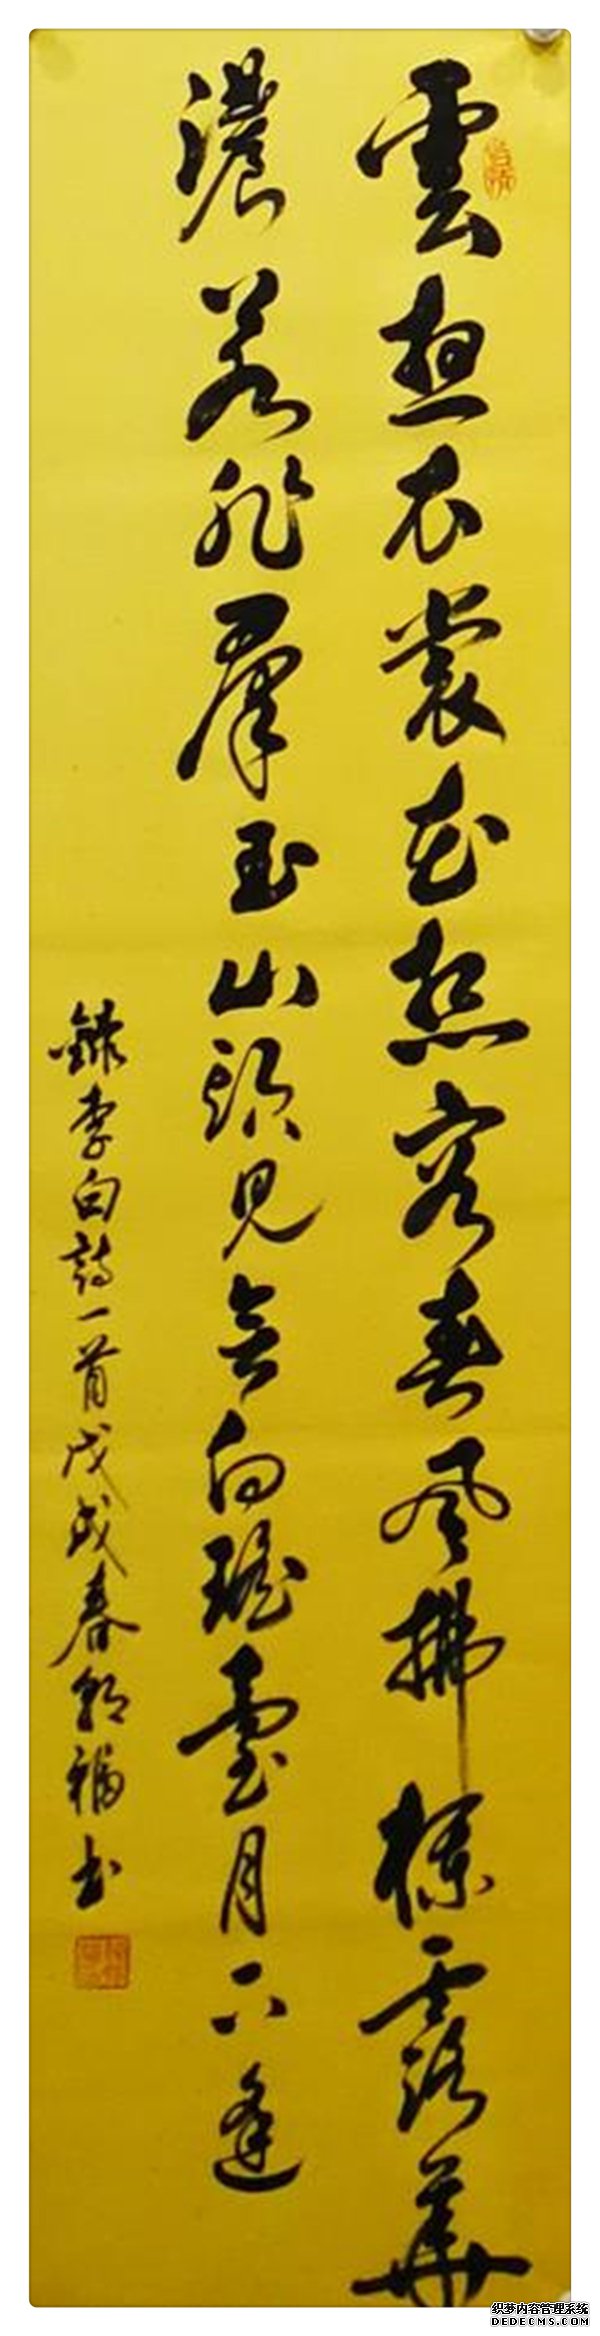 雲想衣裳花想容春風拂檻露華
濃若非群玉山頭見會向瑤臺月下逢
錄李白詩一首戊戌春朝福书
织梦内容管理系统
DEDECMS.COM